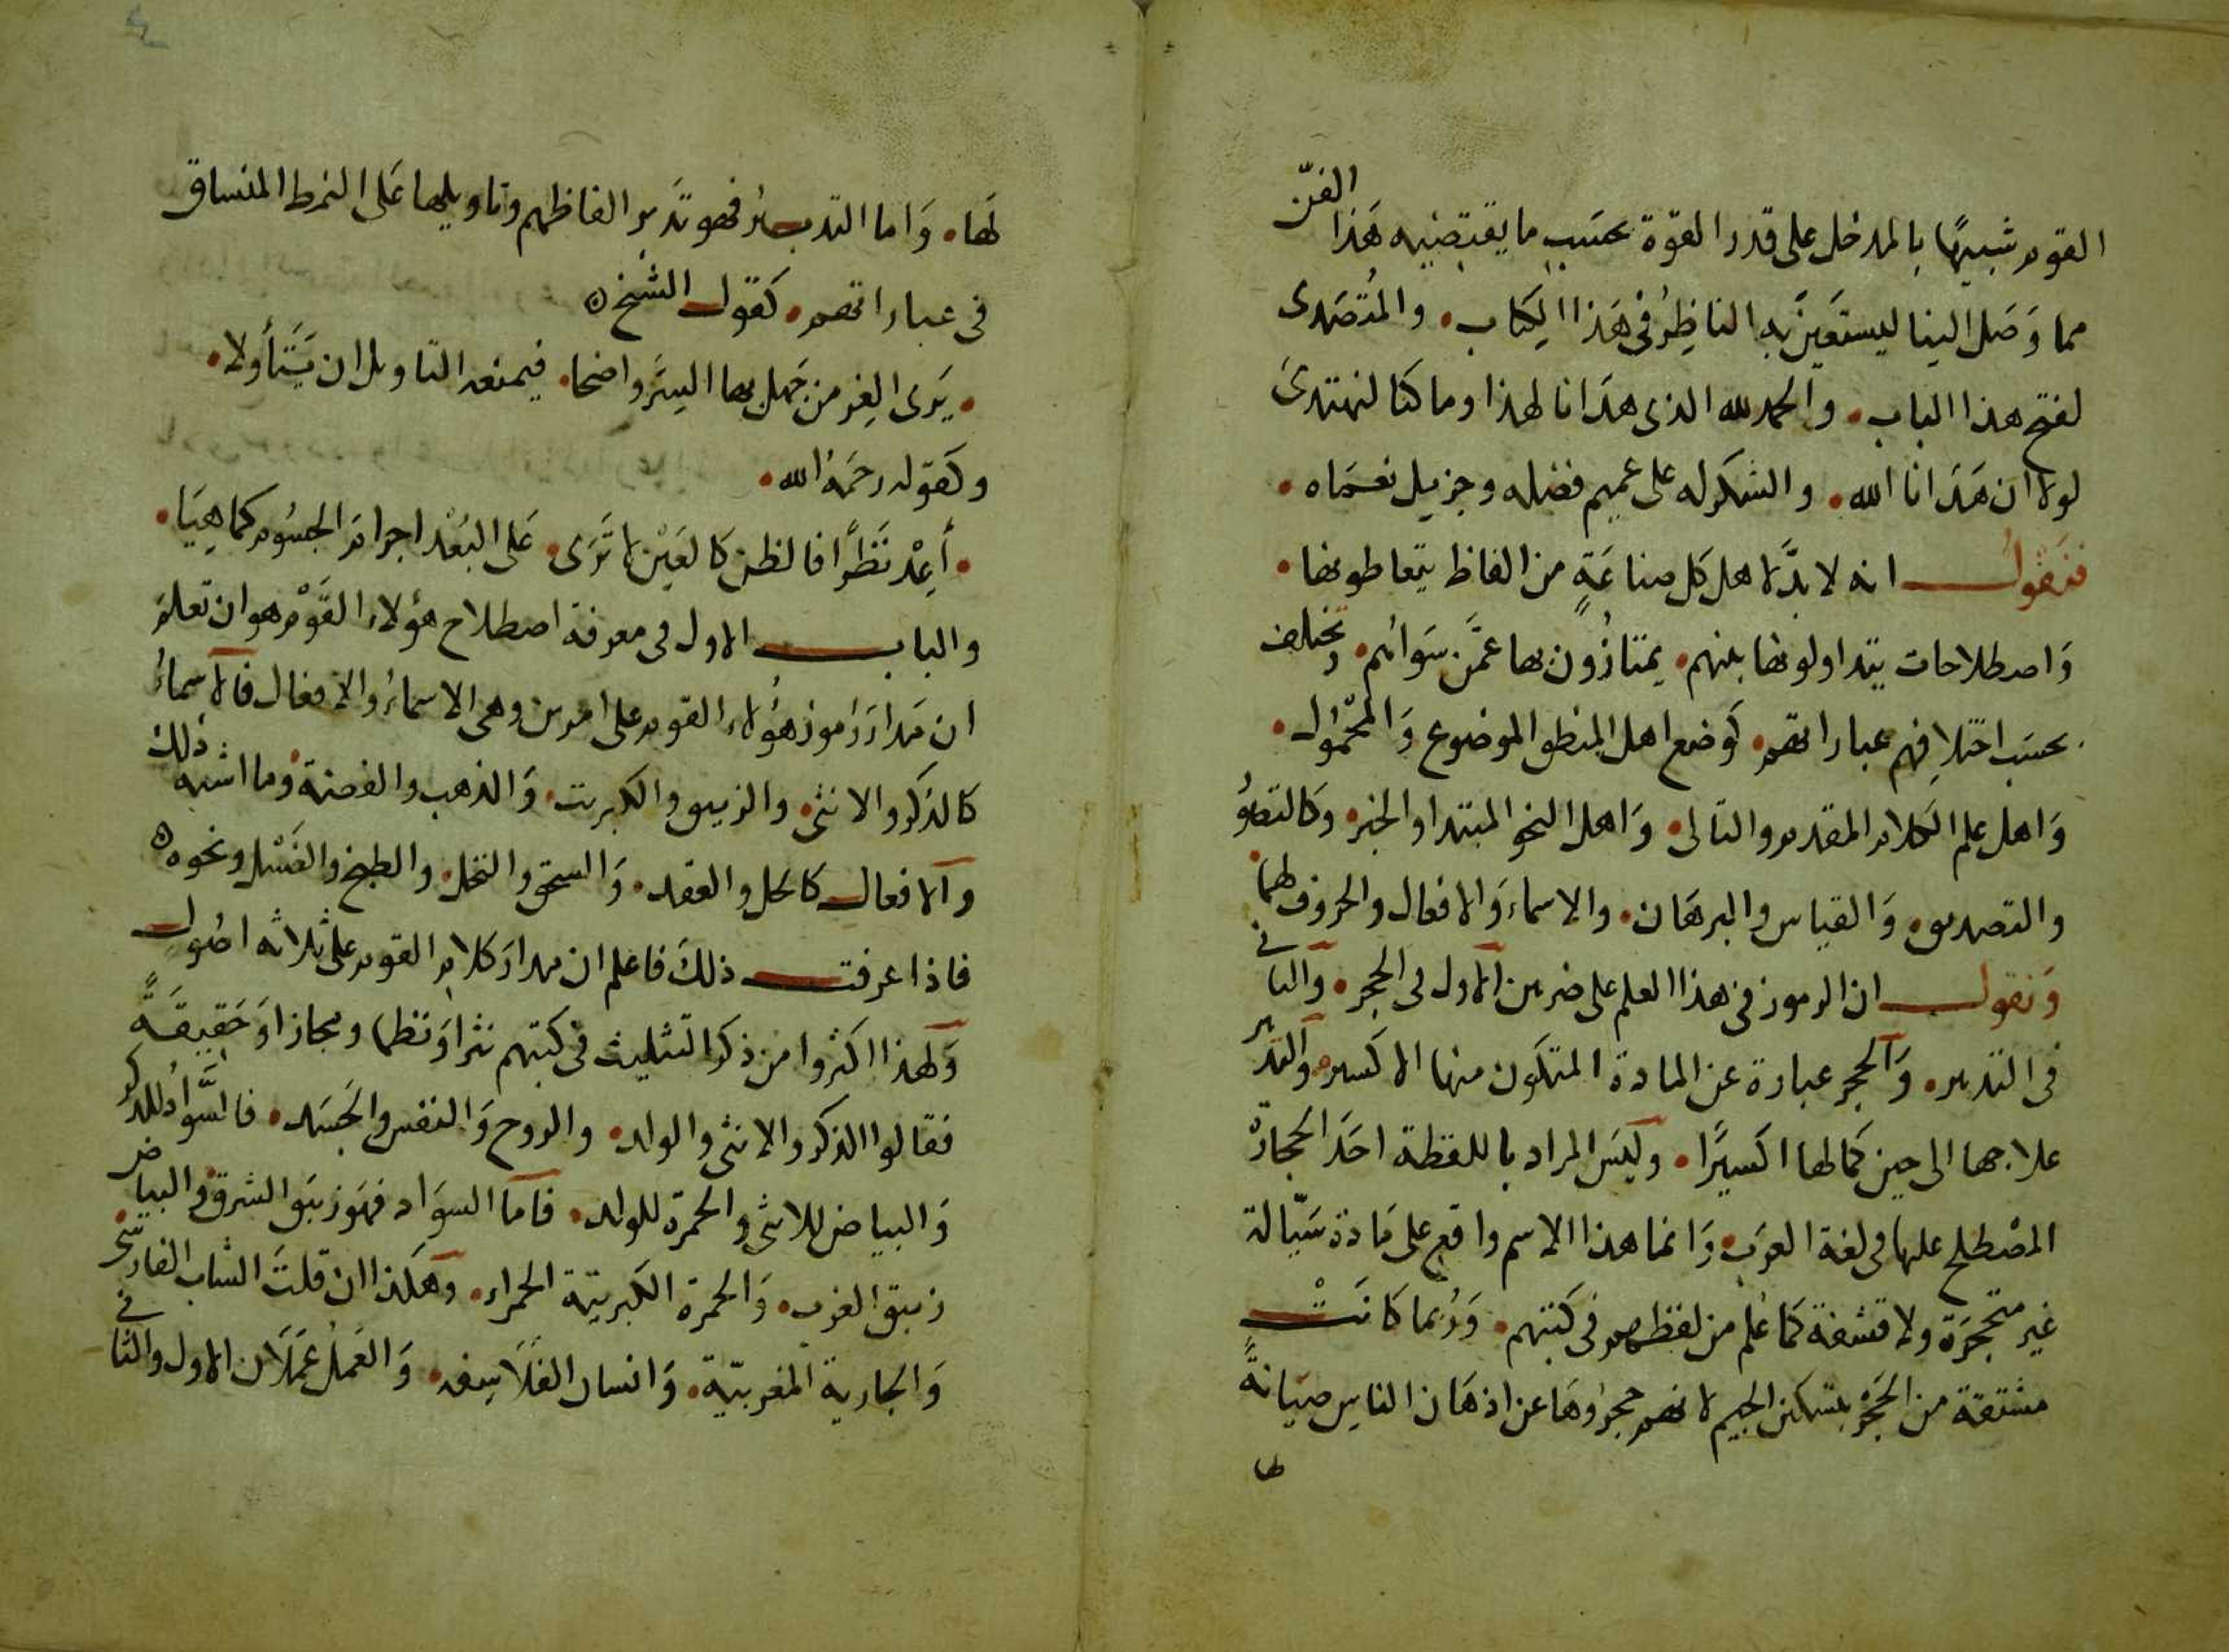 القوم شبيهًا بالمدخل على قدر القوة بحسَب ما يقتضيه هَذا الفنّ
مما وَصَل الينا ليستعَينَ به الناظِرُ في هَذا الكِتاب. والمُتصَدى
لفتح هذا الباب. والحمد لله الذى هدَانا لهذا وما كنا لنهتدىَ
لولا ان هَدَانا الله. والشكر له على عميم فضله وجزيل نعمَاه.
فنقول انه لا بدَّ لاهل كل صناعَةٍ من الفاظ يتعاطونها.
وَاصطلاحات يتداولونها بينهم. يمتازُون بها عمَّن سَوائهم. وتختلف
بحسَب اختلافِهم عباراتهم. كوَضع اهل المنطق الموضوع وَالمحْمُول.
وَاهل علم الكلام المقدم والتالى. وَاهل النحو المبتدا والخبر. وكالتصوُّ
والتصديق. وَالقياس والبرهَان. والاسماءَ وَالافعال والحروف لهما.
وَنقول ان الرموز في هذا العلم على ضربين الاول في الحجر. والثانى
في التدبير. وَالحجر عبارة عن المادة المتكون منها الاكسير. والتدبير
علاجها الى حين كمالها اكسيرًا. وليسَ المراد باللفظة احَدَ الحجارة
المصْطلح عليها فى لغة العرَب. وَانما هذا الاسم واقع على مَادة سَيّالة
غير متحجرَة ولا قشفة كمَا عُلم من لفظهم في كتبهم. وَرُبما كانَتْ
مشتقة من الحَجْر بتسكين الجيم لانهم حجرُوهَا عن اذهَان الناسِ صيَانةً
لها
لهَا. وَاما التدبير فهو تدَبر الفاظهم وتاويلها عَلى النمط المنساق
فى عباراتهم. كقول الشيخ
. يَرى الغِر من جَهل بها السِرَّ واضحا. فيمنعه التاويل ان يَتَأولا.
وكقوله رحمَهُ الله.
. أَعِدْ نَظرًا فالظن كالعَيْن لا تَرَى. عَلى البُعْد اجرامَ الجسُوم كما هِيَا.
والباب الاول فى معرفة اصطلاح هؤلاء القَوْم هو ان تعلمَ
ان مَدارَ رُموز هؤُلاء القوم على امرين وهى الاسماءُ والافعال فالاسماءُ
كالذكر والانثى. والزيبق والكبريت. وَالذهب والفضة. وما اشبه ذلك
والافعال كالحل والعقد. وَالسحق والنخل. والطبخ والغسْل ونحوه
فاذا عرفت ذلكَ فاعلم ان مدارَ كلام القوم على ثلاثه اصُول
وَلهذا اكثروا من ذكر التثليث في كتبهم نثرا وَنظما ومجازا وَحَقيقَةً
فقالوا الذكر والانثى والولد. والروح وَالنفس والجَسَد. فالسَّوادُ للذكر
وَالبياض للانثى والحمرة للولد. فامَا السوَاد فهوَ زيبَق الشرق والبياض
زيبق الغرب. وَالحمرة الكبريتية الحمراء. وهكذا ان قلتَ الشاب الفارسى
وَالجارية المغربيّة. وَانسان الفلَاسِفه. وَالعَملُ عَمَلَان الاول والثانى